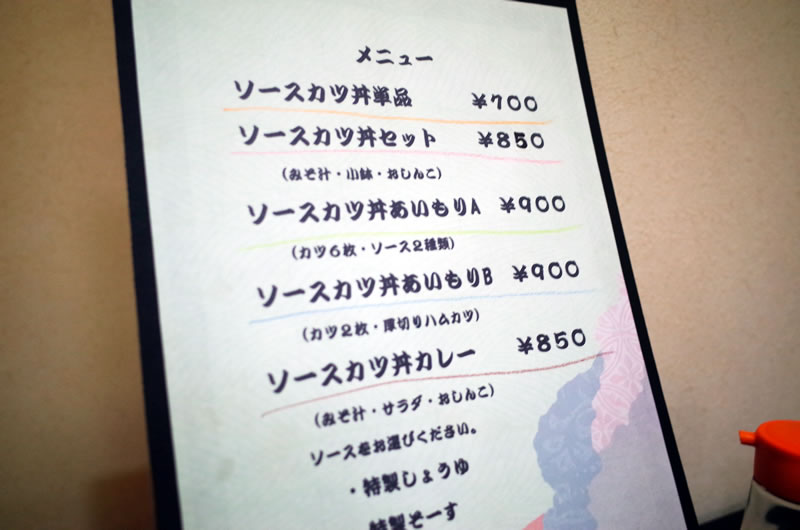 メニュー
ソースカツ丼単品 ¥700
ソースカツ丼セット ¥850
(みそ汁・小鉢・おしんこ)
ソースカツ丼あいもりA ¥900
(カツ6枚・ソース2種類)
ソースカツ丼あいもりB ¥900
(カツ2枚・厚切りハムカツ)
ソースカツ丼カレー ¥850
(みそ汁・サラダ・おしんこ)
ソースをお選びください。
・特製しょうゆ
特製そーす